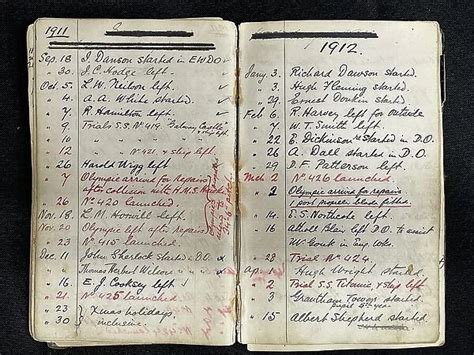 1911
Sep. 18 J. Dawson started in EWDO
" 30. J. C. Hodge left.
Oct. 5 L. W. Neilson left.
" 4. A. A. White started.
" 7. R. Hamilton left.
" 9. Trials S.S. No 419. "Galway Castle"
" 12 " No 421 & ship left.
" 26 Harold Wigg left
" 7 Olympic arrived for repairs
after collision with H.M.S. Hawke
" 26 No 420 launched.
Nov. 18. L. M. Howill left.
Nov. 20 Olympic left after repairs
" 23 No 415 launched
Dec. 11 John Sherlock started in D.O.
" " Thomas Herbert Wilson "
" 16. E. J. Cooksey left
" 21. No 425 launched.
" 23 } Xmas holidays.
" 30 } inclusive.
1912.
Jany 3. Richard Dawson started.
" 3. Hugh Fleming started.
" 29. Ernest Donkin started.
Feb 6 R. Harvey left for
" 7. W. T. Smith left.
" 22 E. Dickinson Started in D.O.
" 26 A. Dael started in D.O.
" 29. D. F. Patterson left.
Mch 2 No 426 launched
" 2 Olympic arrived for repairs
1 port propeller blade fitted.
" 14. E. S. Northcote left.
" 16 Blair left D.O. to assist
W. in Eng. Wks.
" 28 Trial No 424.
Ap Hugh Wright started.
" 2. Trial S.S. Titanic & ship left
" 3. Grantham Tower started
" 15 Albert Shepherd started